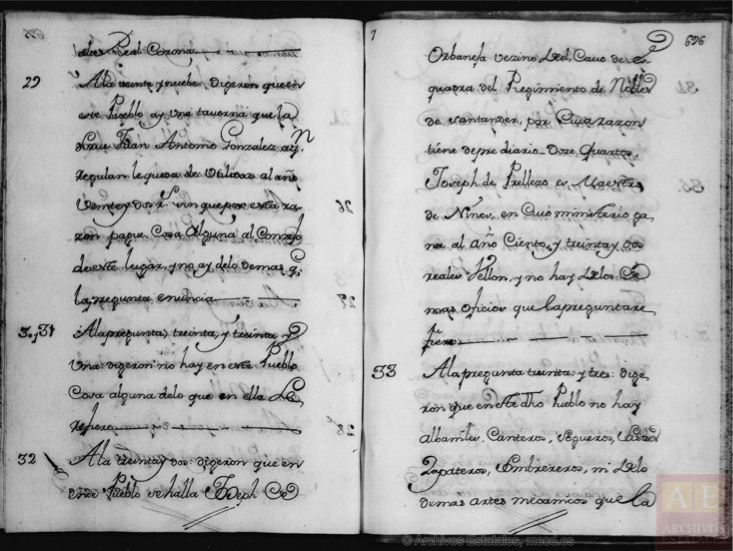 esta Real Corona
29 A la veinte y nueve, digeron que en
este Pueblo ay una taverna que la
sirve Juan Antonio Gonzalez a q.n
regulan le queda de utilidad al año
veinte y dos r.s sin que por esta ra-
zon pague cosa alguna al Conzejo
de este lugar, y no ay de lo demas q.e
la pregunta enuncia
30 y 31 A la pregunta, treinta, y treinta y
una digeron no hay en este Pueblo
Cosa alguna de lo que en ella se
refiere
32 A la treinta y dos: digeron que en
este Pueblo se halla Joseph de
7
696
Orbaneja vezino del, Cavo de es
quadra del Regimiento de
de Santander, por Cuia razon
tiene de pre diario Doze quartos,
Joseph de Pellezo es Maestro
de Niños, en Cuio ministerio ga
na al año Ciento, y treinta y dos
reales Vellon, y no hay de los de
mas oficios que la pregunta re
fiere
33 A la pregunta treinta y tres: dige
ron que en este dho Pueblo no hay
albañiles, Canteros,
Zapateros, Sombrereros, ni de lo
demas artes mecanicos que la
© Archivos Estatales, mecd.es
AE
ARCHIVOS
ESTATALES